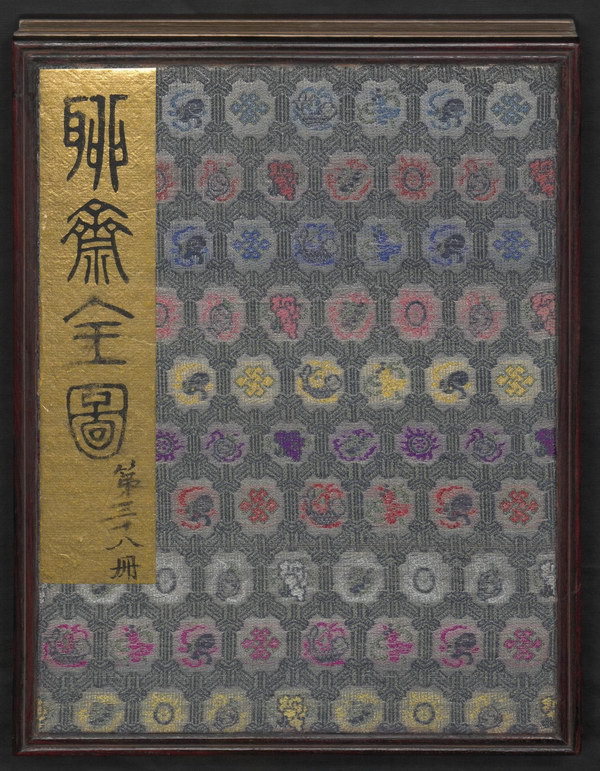 聊齋全圖
第三十八冊